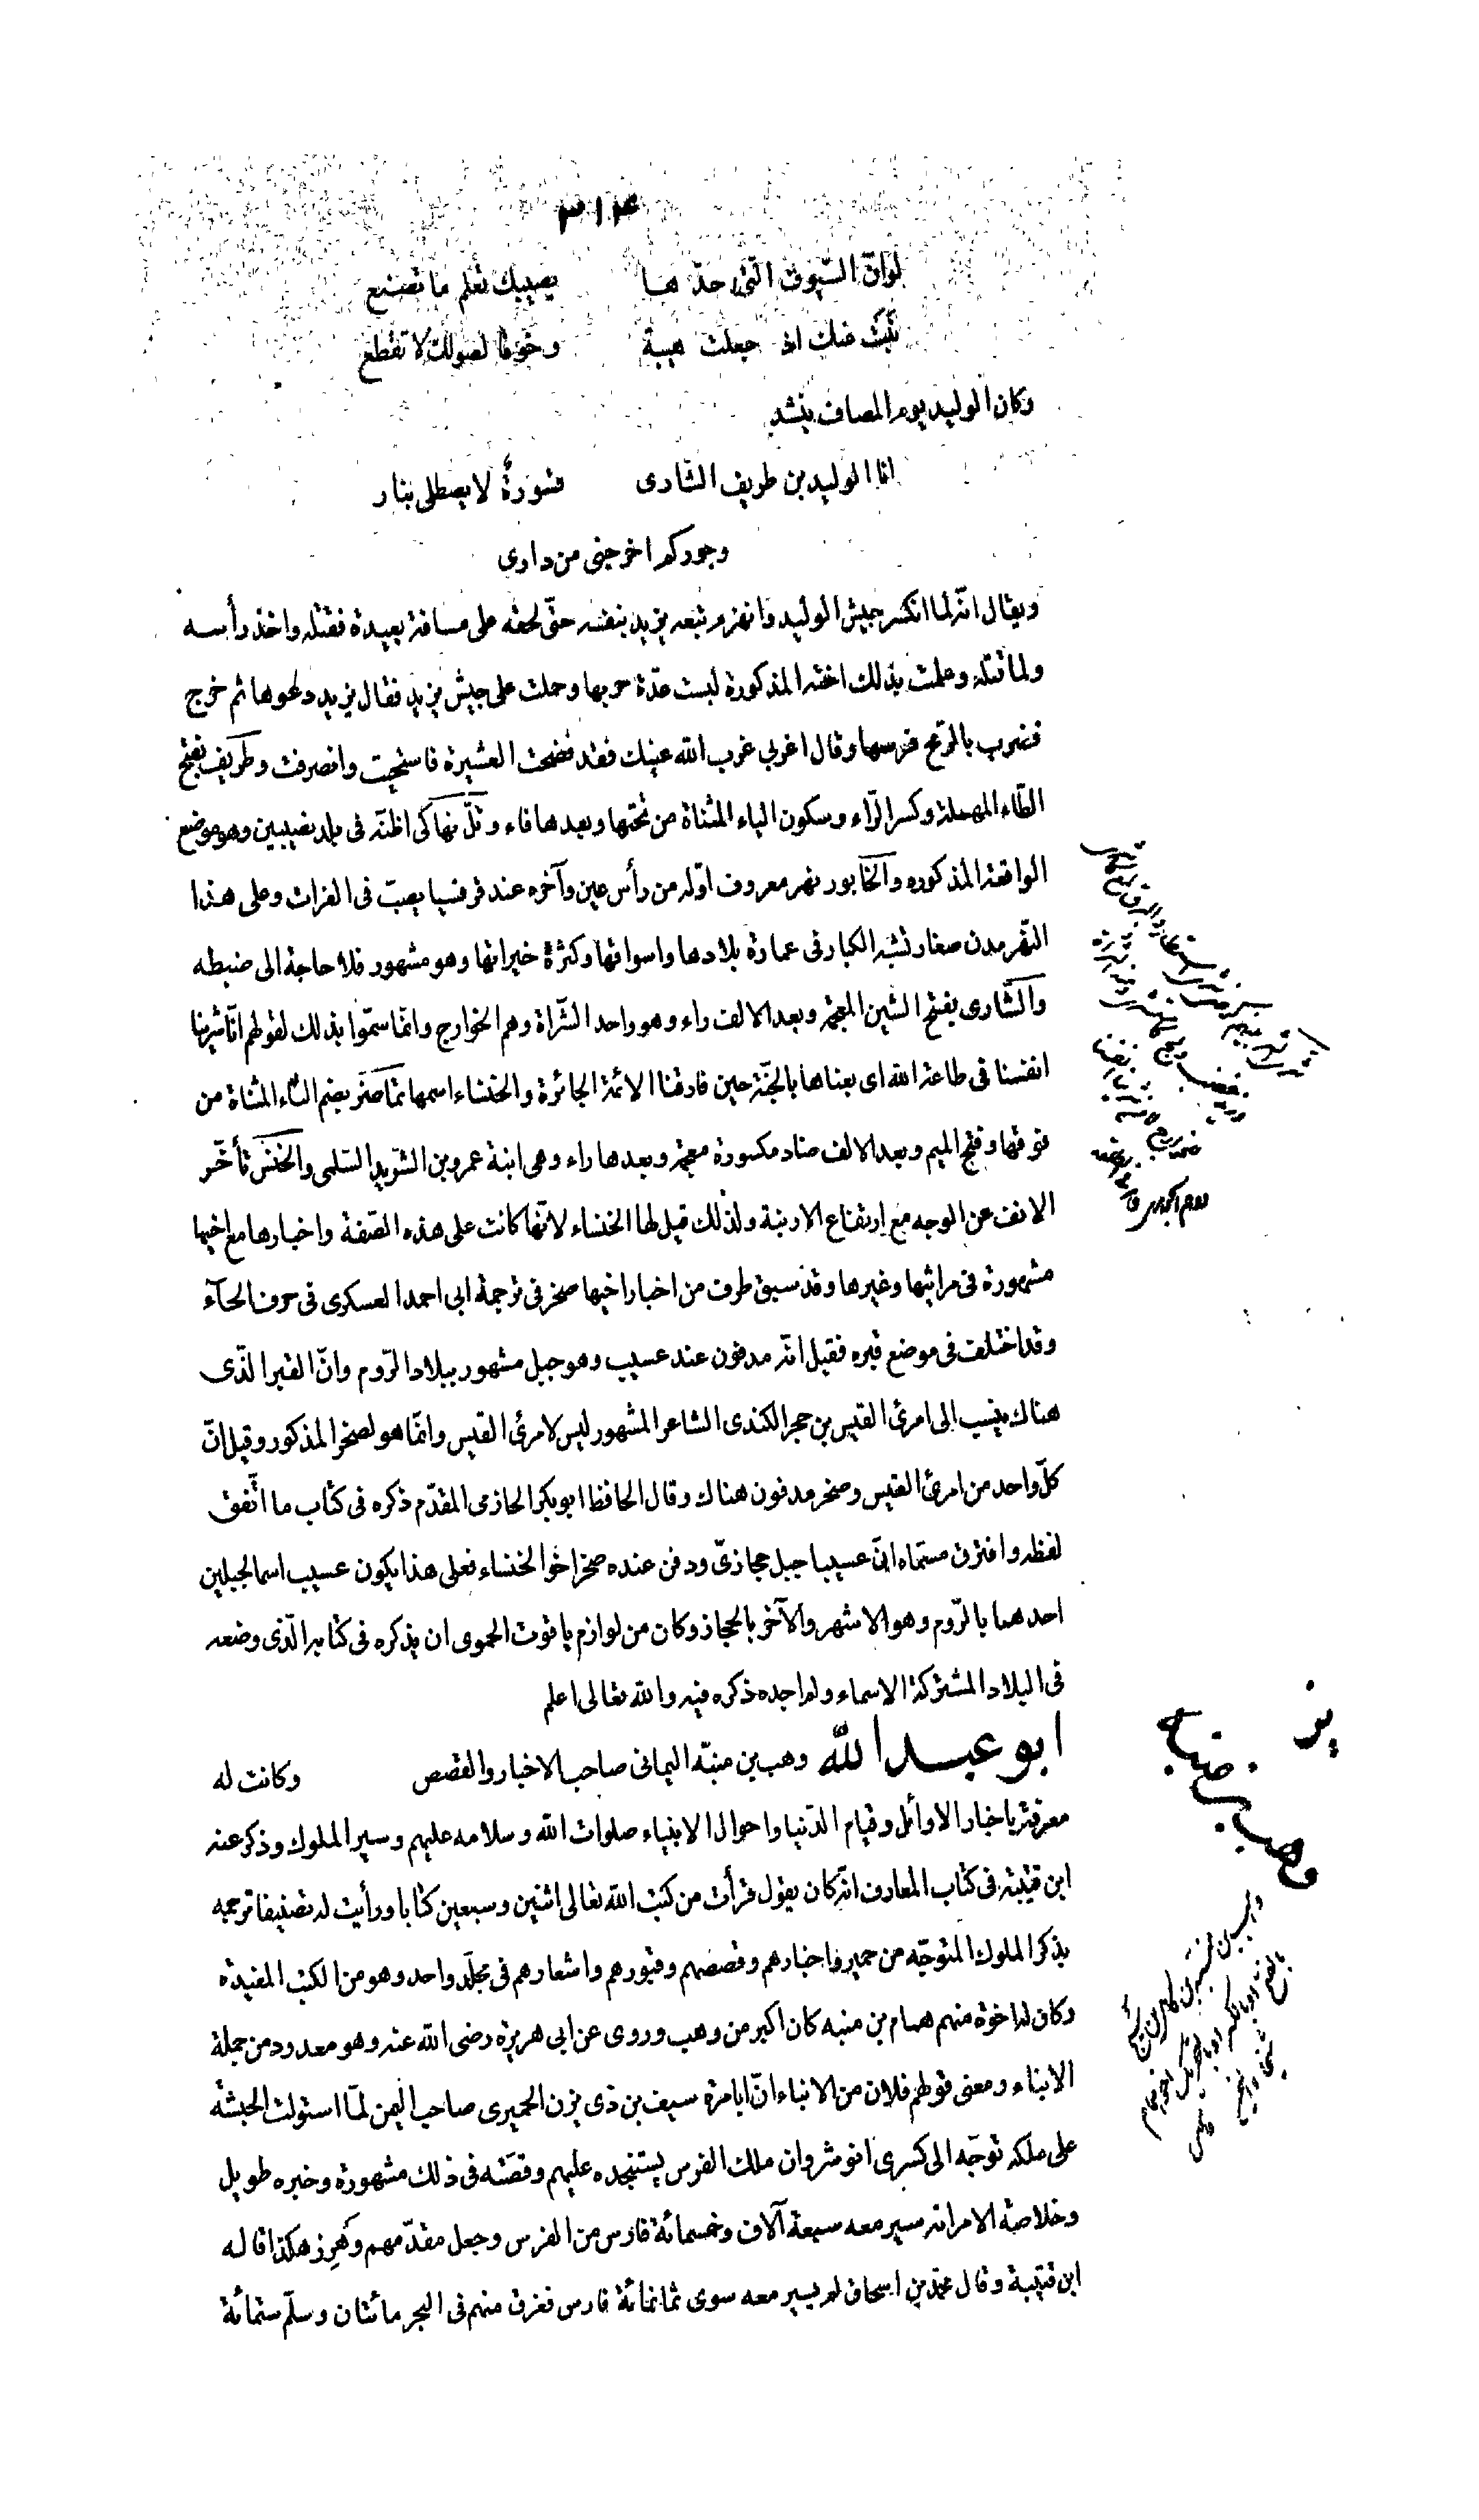 ٣١٤
لوانّ السّيوف الّتى حدّ هـا يصيبك تعلم ما تصنع
نبت عنك او جعلت هيبة وخوفا لصولك لا تقطع
وكان الوليد يوم المصاف ينشد
انا الوليد بن طريف الشّارى قسورةٌ لا يصطلى بنار
وجوركم اخرجنى من دارى
ويقال انّه لما انكسر جيش الوليد وانهزم تبعه يزيد بنفسه حتّى لحقه على مسافة بعيدة فقتله واخذ رأسـه
ولما قتله وعلمت بذلك اخته المذكورة لبست عدّة حربها وحملت على جيش يزيد فقال يزيد دعوها ثم خرج
فضرب بالرّمح فرسها وقال اغربى غرب الله عينك فقد فضحت العشيرة فاستحيت وانصرفت وطريف بفتح
الطّاء المهملة وكسر الرّاء وسكون الياء المثناة من تحتها وبعدها فاء وتلّ نهاكى اظنّه فى بلد نصيبين وهو موضع
الواقعة المذكوره والخابور نهر معروف اوّله من رأس عين وآخره عند قرقيسيا يصبّ فى الفرات وعلى هـذا
النّهر مدن صغار تشبه الكبار فى عمارة بلادها واسواقها وكثرة خيراتها وهو مشهور فلا حاجة الى ضبطه
والشّارى بفتح الشين المعجمة وبعد الالف راء وهو واحد الشّراة وهم الخوارج وانّما سمّوا بذلك لقولهم انّا شرينا
انفسنا فى طاعة الله اى بعناها بالجنّة حين فارقنا الائمة الجائرة والخنساء اسمها تماضر بضم التّاء المثناة من
فوقها وفتح الميم وبعد الالف ضاد مكسورة معجمة وبعدها راء وهى ابنة عمرو بن الشّويد السّلمى والخنس تأخّـر
الانف عن الوجه مع ارتفاع الارنبة ولذلك قيل لها الخنساء لانّها كانت على هذه الصّفة واخبارها مع اخيها
مشهورة فى مراثيها وغيرها وقد سبق طرف من اخبار اخيها صخر فى ترجمة ابى احمد العسكرى فى حرف الحآء
وقد اختلف فى موضع قبره فقيل انّه مدفون عند عسيب وهو جبل مشهور ببلاد الرّوم وانّ القبر الّذى
هناك ينسب الى امرئ القيس بن حجر الكندى الشاعر المشهور ليس لامرئ القيس وانّما هو لصخر المذكور وقيل انّ
كلّ واحد من امرئ القيس وصخر مدفون هناك وقال الحافظ ابو بكر الحازمى المقدّم ذكره فى كتاب ما اتّفق
لفظه وافترق مسمّاه انّ عسيبا جبل حجازىّ ودفن عنده صخر اخو الخنساء فعلى هذا يكون عسيب اسما لجبلين
احدهما بالرّوم وهو الاشهر والآخر بالحجاز وكان من لوازم ياقوت الحموى ان يذكره فى كتابه الّذى وضعه
فى البلاد المشتركة الاسماء ولم اجده ذكره فيه والله تعالى اعلم
ابو عبـد الله وهب بن منبّه اليمانى صاحب الاخبار والقصص وكانت له
معرفة باخبار الاوائل وقيام الدّنيا واحوال الانبياء صلوات الله وسلامه عليهم وسير الملوك وذكر عنه
ابن قتيبة فى كتاب المعارف انّه كان يقول قرأت من كتب الله تعالى اثنين وسبعين كتابا ورأيت له تصنيفا ترجمه
بذكر الملوك المتوجّه من حمير واخبارهم وقصصهم وقبورهم واشعارهم فى مجلّد واحد وهو من الكتب المفيدة
وكان له اخوة منهم همام بن منبه كان اكبر من وهب وروى عن ابى هريرة رضى الله عنه وهو معدود من جملة
الابناء ومعنى قولهم فلان من الابناء انّ ابا مرة سيف بن ذى يزن الحميرى صاحب اليمن لمّا استولت الحبشة
على ملكه توجّه الى كسرى انوشروان ملك الفرس يستنجده عليهم وقصّته فى ذلك مشهورة وخبره طويل
وخلاصة الامر انه سير معه سبعة آلاف وخمسمائة فارس من الفرس وجعل مقدّمهم وَهرِز هكذا قاله
ابن قتيبة وقال محمّد بن اسحاق لم يسير معه سوى ثمانمائة فارس فغرق منهم فى البحر مائتان وسلّم ستمائة
وهب بن منبه